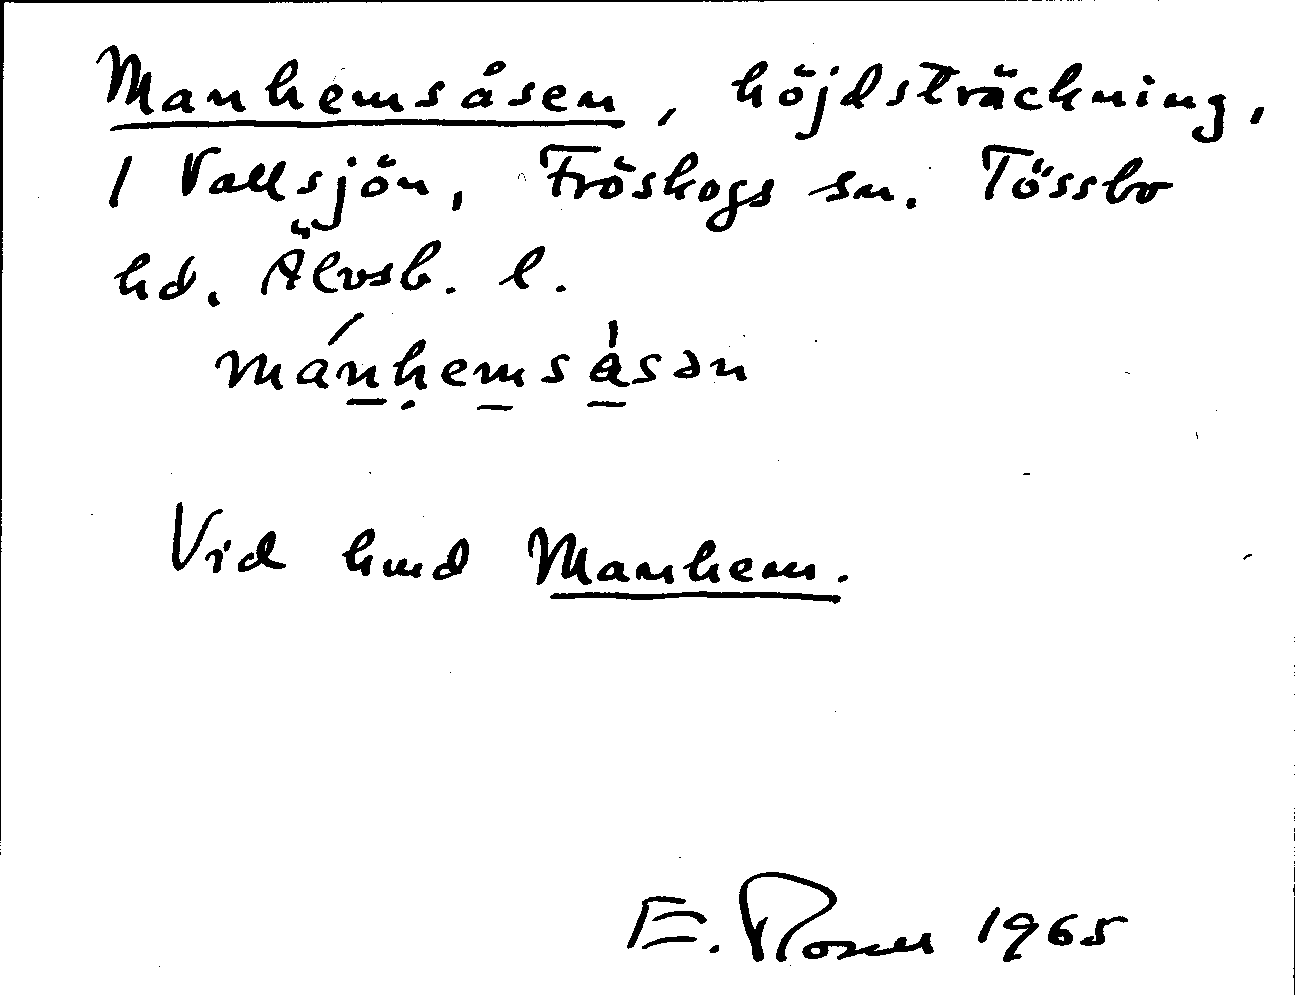 Manhemsåsen, höjdsträckning,
1 Vallsjön, Fröskogs sn. Tössbo
hd. Älvsb. l.
mánhemsåsən
Vid hmd Manhem.
E. Rosell 1965